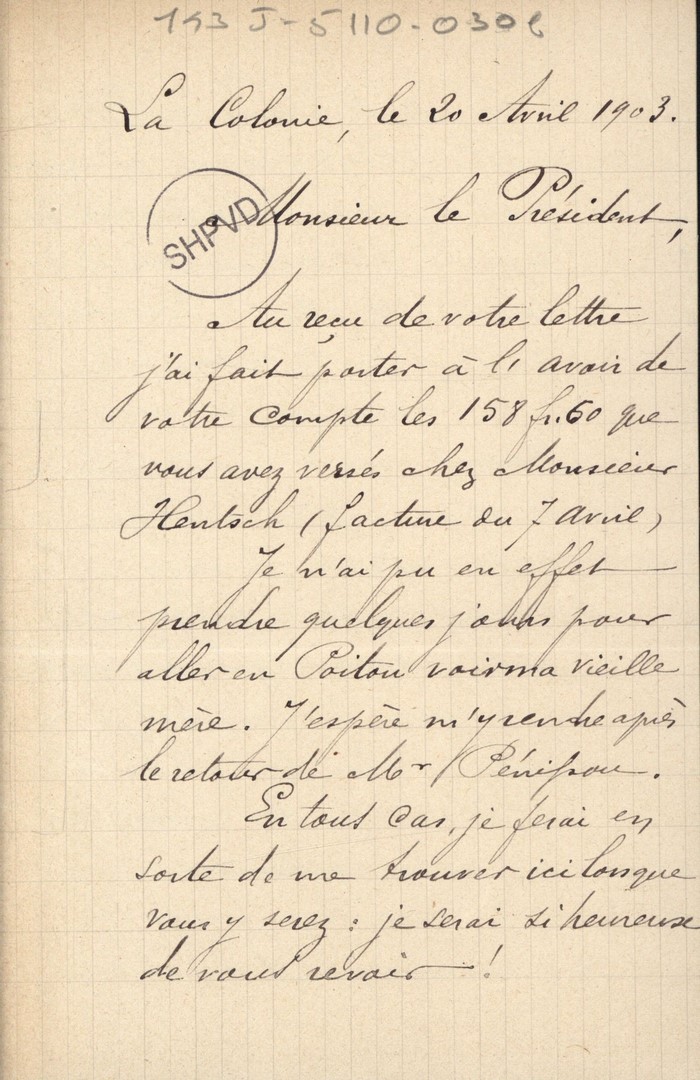 143 J-5110-0308
La Colonie, le 20 Avril 1903.
SHPVD
Monsieur le Président,
Au reçu de votre lettre
j'ai fait porter à l'avoir de
votre compte les 158 fr. 60 que
vous avez versés chez Monsieur
Hentsch (facture du 7 avril)
Je n'ai pu en effet
prendre quelques jours pour
aller en Poitou voir ma vieille
mère. J'espère m'y rendre après
le retour de Mr
En tous cas, je ferai en
sorte de me trouver ici lorsque
vous y serez : je serai si heureuse
de vous revoir !